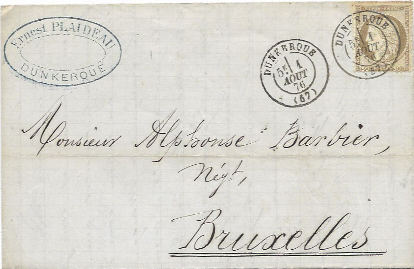 Ernest PLAIDEAU
DUNKERQUE
DUNKERQUE
1
AOUT
76
(67)
DUNKERQUE
AOUT
Monsieur Alphonse Barbier,
Négt,
Bruxelles